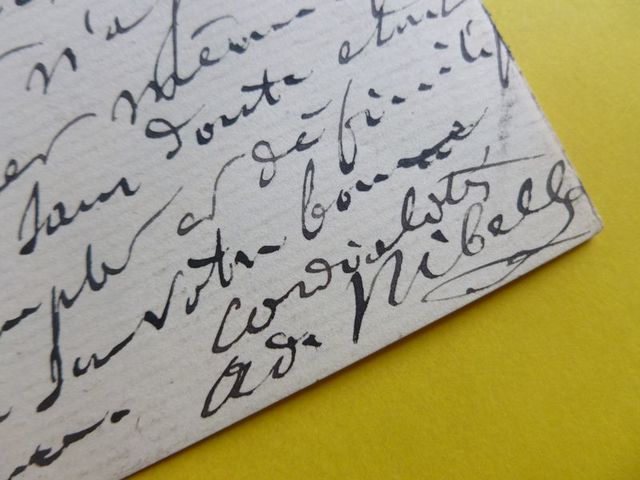 n'a
même
sans doute était
et définitif
votre bonne
cordialité,
Ad. Nibelle